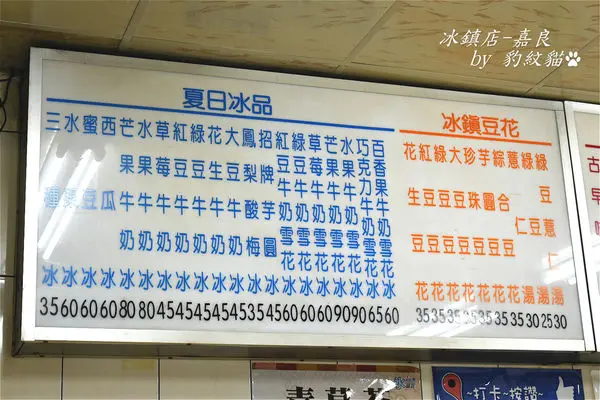 冰鎮店-嘉良
by 豹紋貓
夏日冰品
三種冰 35
水冰 60
蜜豆冰 60
西瓜冰 60
芒果牛奶冰 80
水果牛奶冰 80
草莓牛奶冰 45
紅豆牛奶冰 45
綠豆牛奶冰 45
花生牛奶冰 45
大豆牛奶冰 45
鳳梨酸梅冰 35
招牌芋圓冰 45
紅豆牛奶雪花冰 60
綠豆牛奶雪花冰 60
草莓牛奶雪花冰 60
芒果牛奶雪花冰 90
水果牛奶雪花冰 90
巧克力牛奶雪花冰 65
百香果牛奶雪花冰 60
冰鎮豆花
花生豆花 35
紅豆豆花 35
綠豆豆花 35
大豆豆花 35
珍珠豆花 35
芋圓豆花 35
綜合豆花 35
薏仁湯 30
綠豆湯 25
綠豆薏仁湯 30
古早
青草茶
~打卡~按讚~